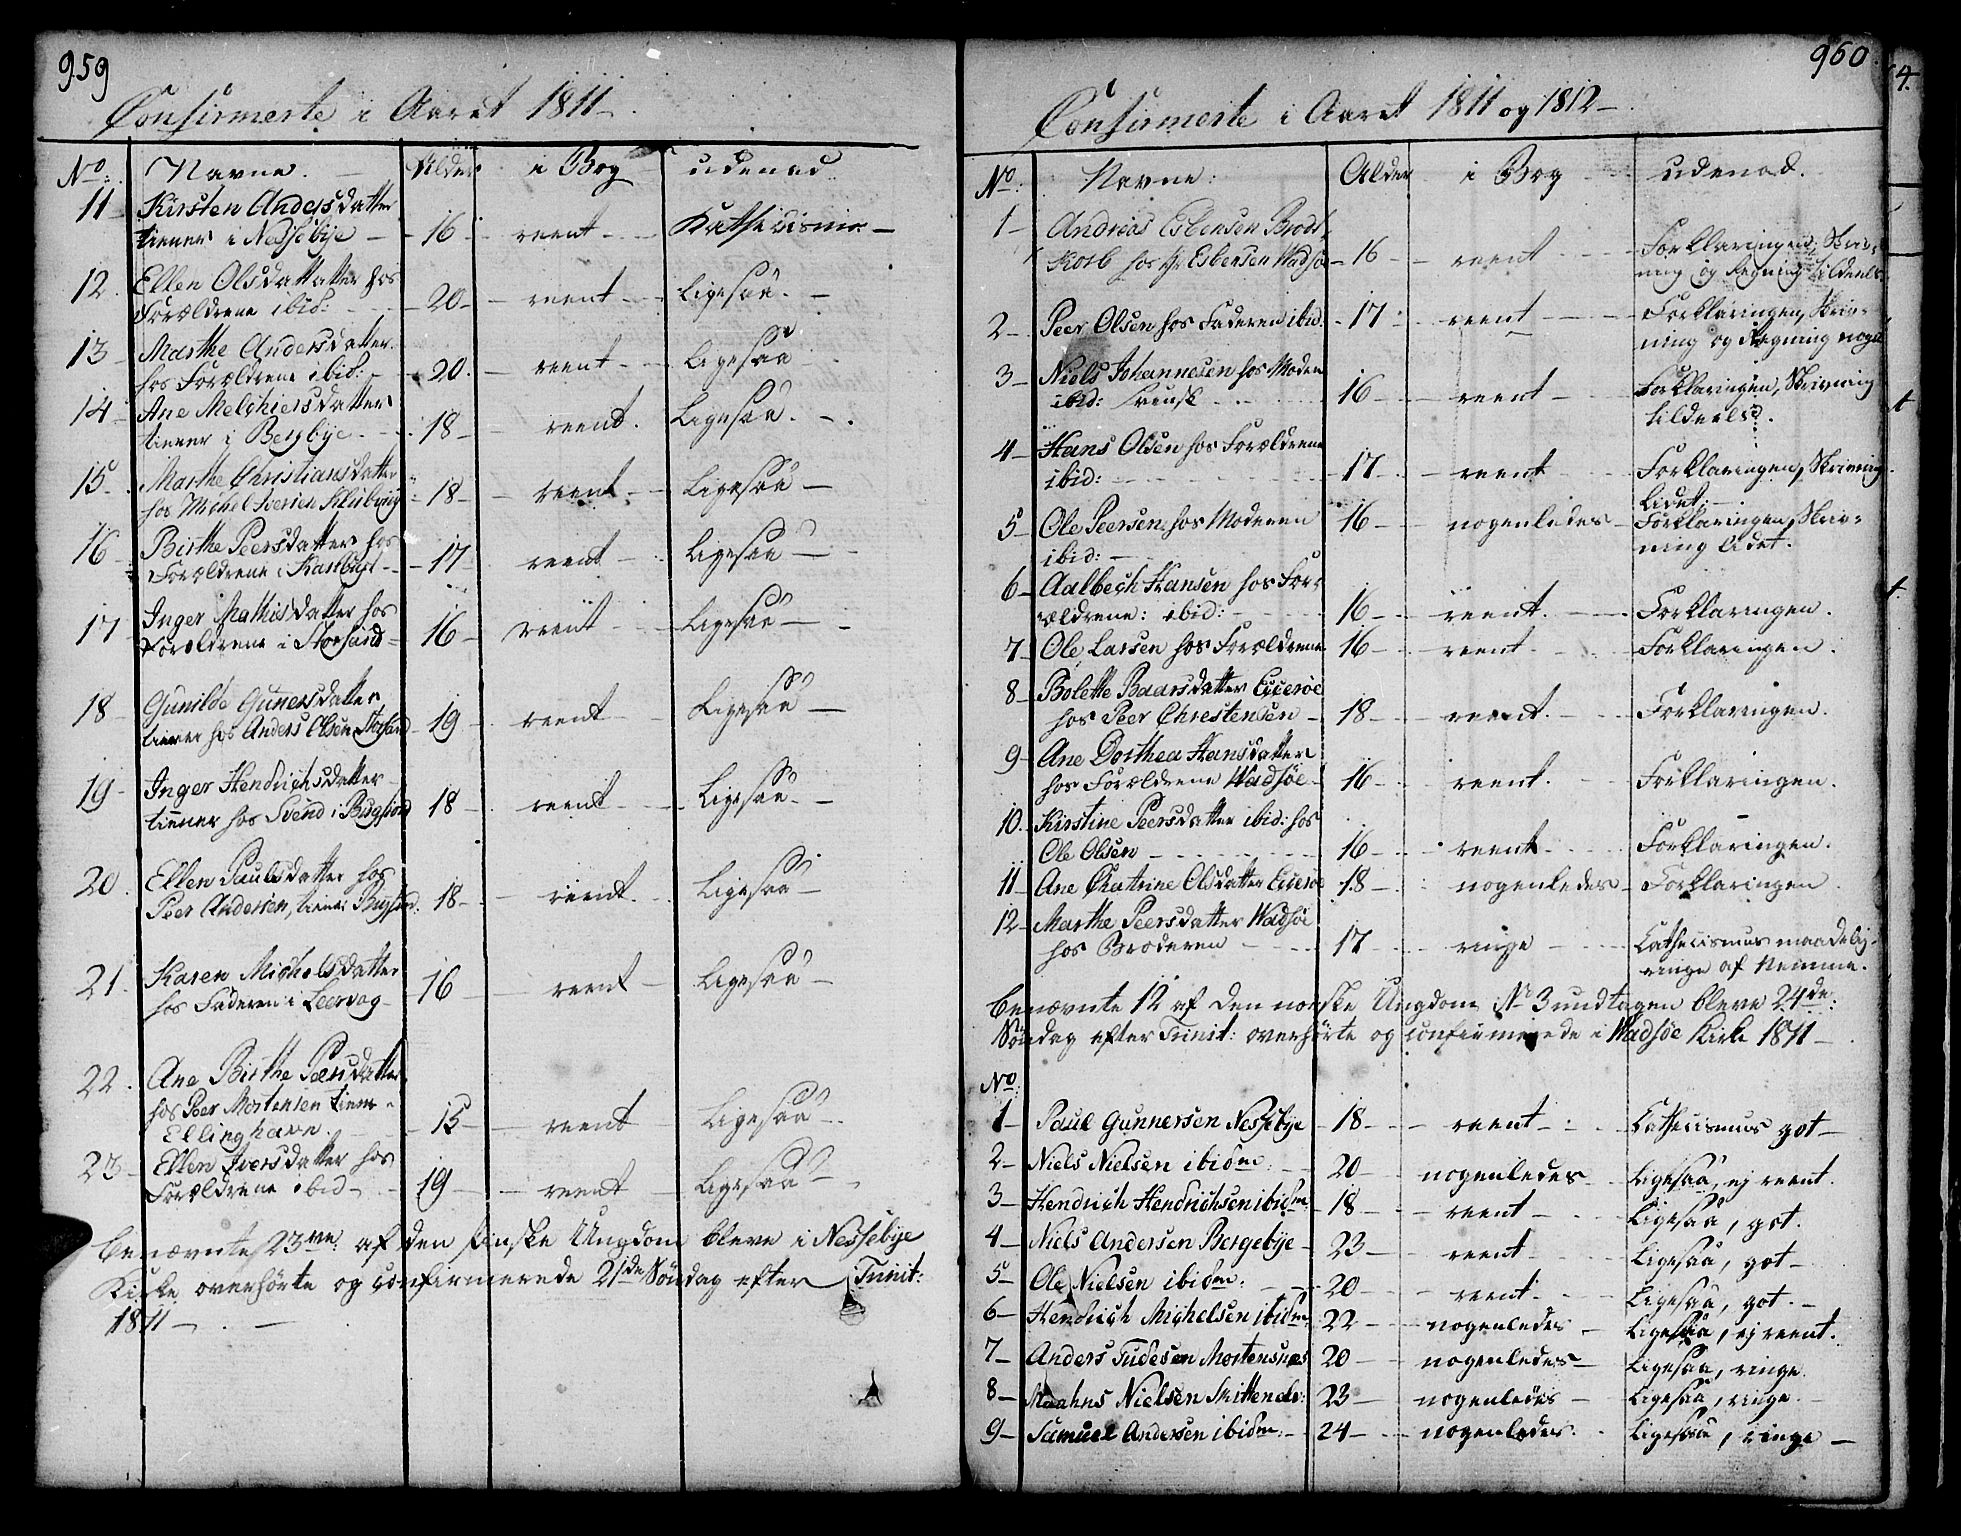 959
Confirmerte i Aaret 1811
No: Navne. Alder i Bog udenad.
11 Kirsten Andersdatter
tiener i Nessebye 16 reent Kathecismen
12. Ellen Olsdattatter hos
Forældrene ibid: 20 reent Ligesaa.
13 Marthe Andersdatter
hos Forældrene ibid: 20. reent Ligesaa
14 Ane Melchiersdatter
tiener i Bergbye 18 reent. Ligesaa.
15. Marthe Christiansdatter
hos Michel Iversen 18 reent. Ligesaa
16 Birthe Peersdatter hos
Forældrene i 17 reent Ligesaa
17 Inger Mathisdatter hos
Forældrene i Storsand 16 reent Ligesaa
18 Gunilde Gunersdatter
tiener hos Anders Olsen Storsand 19 reent Ligesaa
19 Inger Hendrichsdatter
tienner hos Svend i 18 reent Ligesaa
20. Ellen Paulsdatter hos
Peer Andersen, tiener 18 reent. Ligesaa
21. Karen Michelsdatter
hos Faderen i Leervog 16 reent Ligesaa
22. Ane Birthe Peersdatter
hos Peer Mortensen tiener
Ellinghavn. 15 reent Ligesaa
23 Ellen Iversdatter hos
Forældrene ibid 19 reent Ligesaa
Benævnte 23ve: af den finske Ungdom bleve i Nessebye
Kirke overhørte og confirmerede 21de Søndag efter Trinit:
1811
960
Confirmerte i Aaret 1811 og 1812
No: Navne: Alder i Bog udenad.
1 Andreas Esbensen Brodt
Korb hos Hr Esbensen Wadsø 16 reent Forklaringen, Skriv-
ning og Regning tildeels
2 Peer Olsen hos Faderen ibid. 17 reent Forklaringen, Skriv-
ning og Regning noget
3 Niels Johannesen hos Moderen
ibid: 16 reent Forklaringen, Skrivning
tildeels.
4 Hans Olsen hos Forældrene
ibid: 17 reent Forklaringen, Skrivning
lidet.
5 Ole Peersen hos Moderen 16 nogenledes Forklaringen, Skriv-
ibid: ning lidet.
6 Aalbech Hansen hos For-
ældrene: ibid: 16 reent. Forklaringen.
7 Ole Larsen hos Forældrene 16 reent Forklaringen.
8 Bolette Baarsdatter Eccerøe
hos Peer Chrestensen 18 reent. Forklaringen.
9 Ane Dorthea Hansdatter
hos Forældrene Wadsøe 16 reent. Forklaringen.
10. Kirstine Peersdatter ibid: hos
Ole Olsen 16 reent Forklaringen.
11 Ane Chatrine Olsdatter Eccerøe 18 nogenledes Forklaringen
12 Marthe Peersdatter Wadsøe
hos Broderen 17 ringe Cathecismus maadelig
ringe af Nemme.
Benævnte 12 af den norske Ungdom No 3 undtagen bleve 24de:
Søndag efter Trinit: overhørte og confirmerede i Wadsøe Kirke 1811
No:
1 Paul Gunnersen Nessebye 18 reent Cathecismus got
2 Niels Nielsen ibidm: 20 nogenledes Ligesaa, ej reent.
3 Hendrich Hendrichsen ibidm 18 reent Ligesaa, got.
4 Niels Andersen Bergebye 23 reent Ligesaa, got
5 Ole Nielsen ibidm: 20 reent Ligesaa, got.
6 Hendrich Mighelsen ibidm: 22 nogenledes Ligesaa, ej reent.
7 Anders Tudesen Mortensnæs 20 nogenledes Ligesaa, ringe.
8 Maahns Nielsen 23 nogenledes Ligesaa, ringe.
9 Samuel Andersen ibidm: 24 nogenledes. Ligesaa, ringe
4.